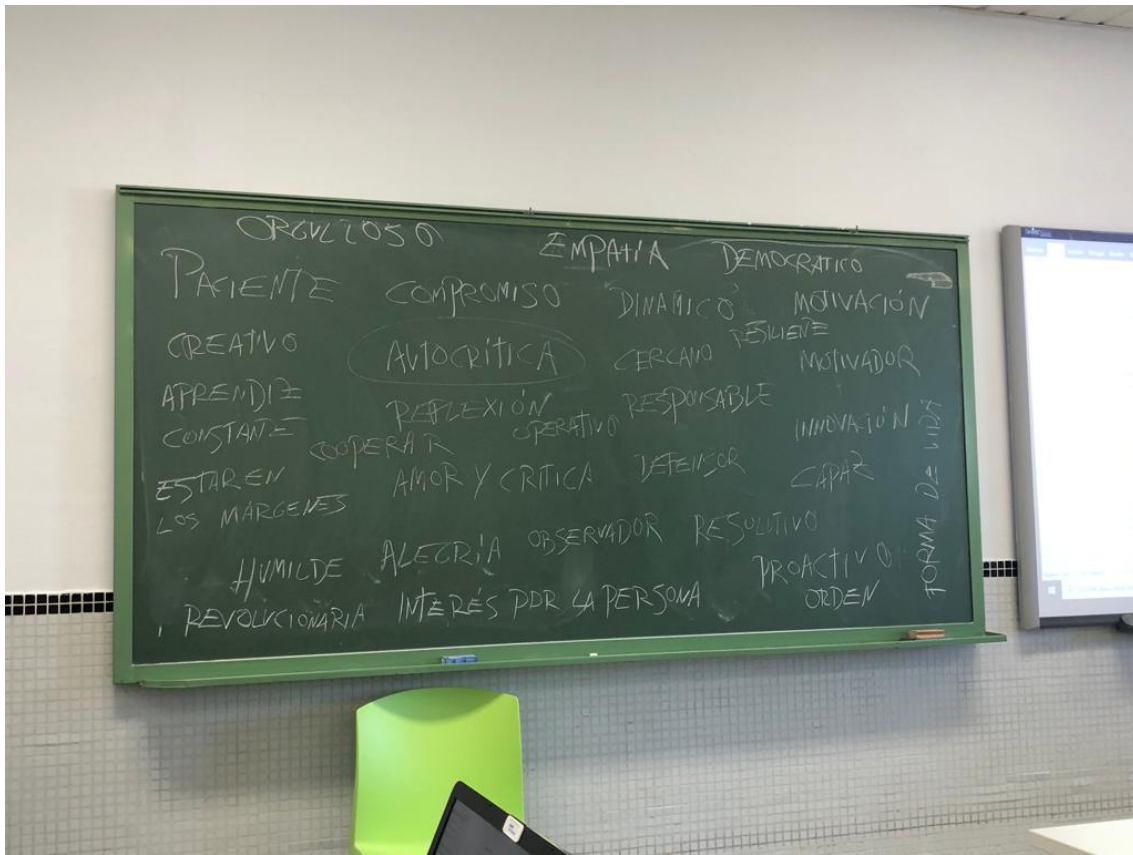 ORGULLOSO
EMPATÍA
DEMOCRATICO
PACIENTE
COMPROMISO
DINAMICO
MOTIVACIÓN
RESILIENTE
CREATIVO
AUTOCRÍTICA
CERCANO
MOTIVADOR
APRENDIZ
CONSTANTE
REFLEXIÓN
OPERATIVO
RESPONSABLE
INNOVACIÓN
COOPERAR
ESTAR EN
LOS MÁRGENES
AMOR Y CRÍTICA
DEFENSOR
CAPAZ
FORMA DE VIDA
HUMILDE
ALEGRÍA
OBSERVADOR
RESOLUTIVO
PROACTIVO
REVOLUCIONARIA
INTERÉS POR LA PERSONA
ORDEN